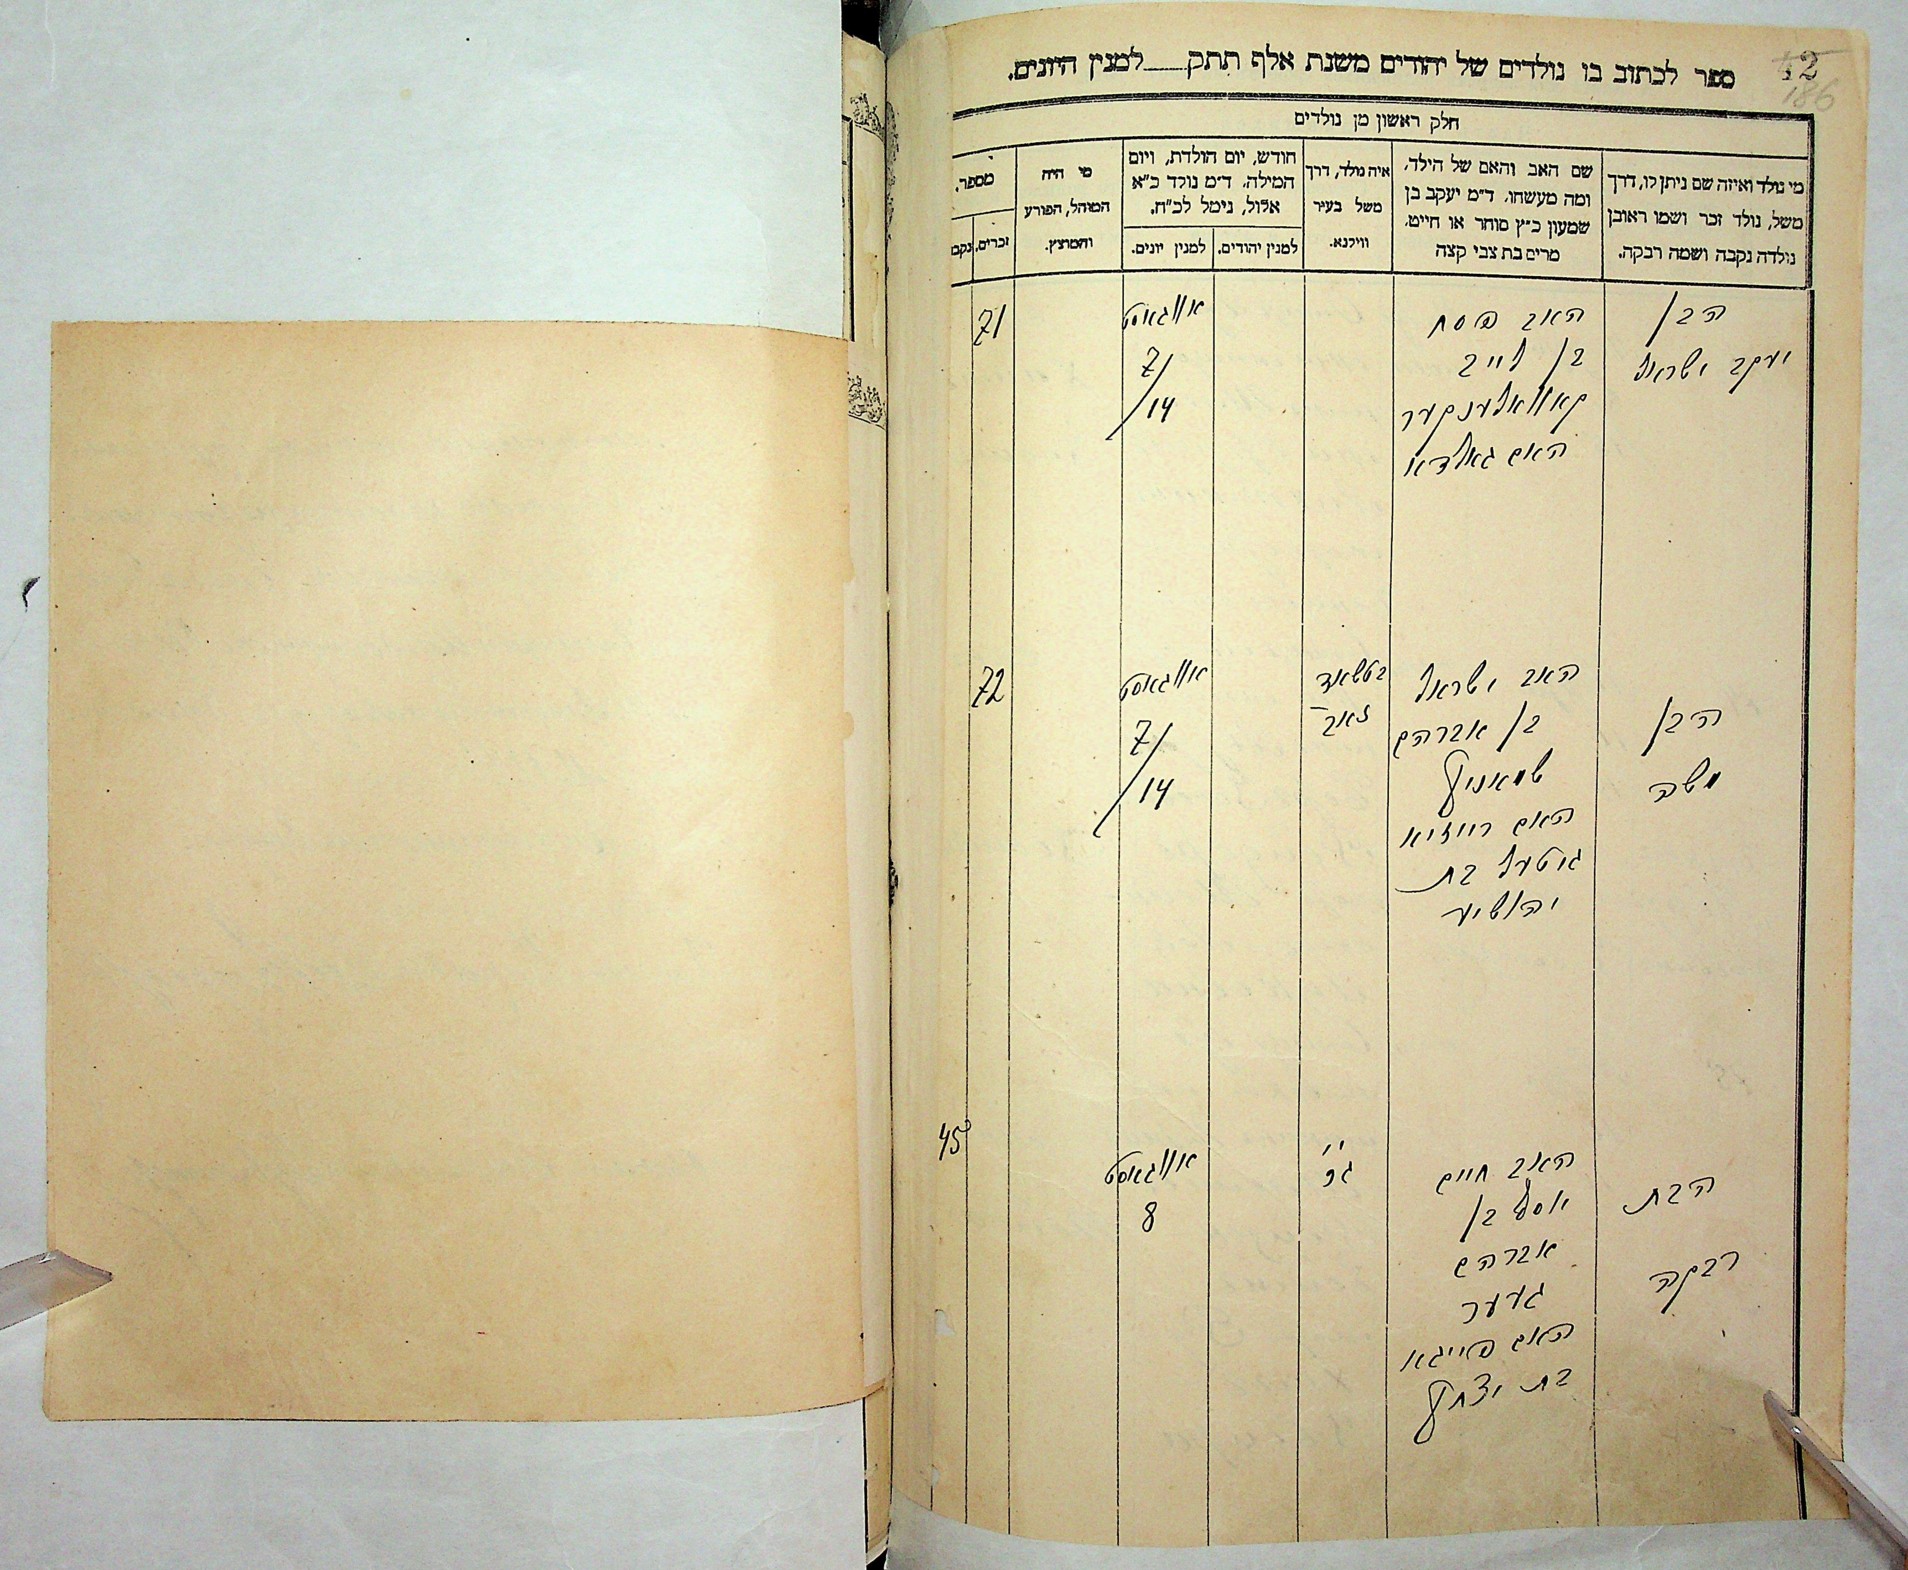 42
186
ספר לכתוב בו נולדים של יהודים משנת אלף תתק___למנין היונים.
חלק ראשון מן נולדים
מי נולד ואיזה שם ניתן לו, דרך
משל, נולד זכר ושמו ראובן
נולדה נקבה ושמה רבקה.
שם האב והאם של הילד,
ומה מעשהו. ד״מ יעקב בן
שמעון כ״ץ סוחר או חייט,
מרים בת צבי קצה
איה נולד, דרך
משל בעיר
ווילנא.
חודש, יום הולדת, ויום
המילה, ד״מ נולד כ״א
אלול, נימל לכ״ח.
למנין יהודים.
למנין יונים.
מי היה
המוהל, הפורע
והמוצץ.
מספר.
זכרים.
נקבו
הבן
יעקב ישראל
האב פסח
בן לייב
קאוואלענקער
האם גאלדא
אווגאסט
7/
/14
71
הבן
משה
האב ישראל
בן אברהם
האם רייזיא
גיטעל בת
יהושיע
אווגאסט
7/
/14
72
הבת
רבקה
האב חיים
אסף בן
אברהם
געער
האם פייגא
בת יצחק
אווגאסט
8
45